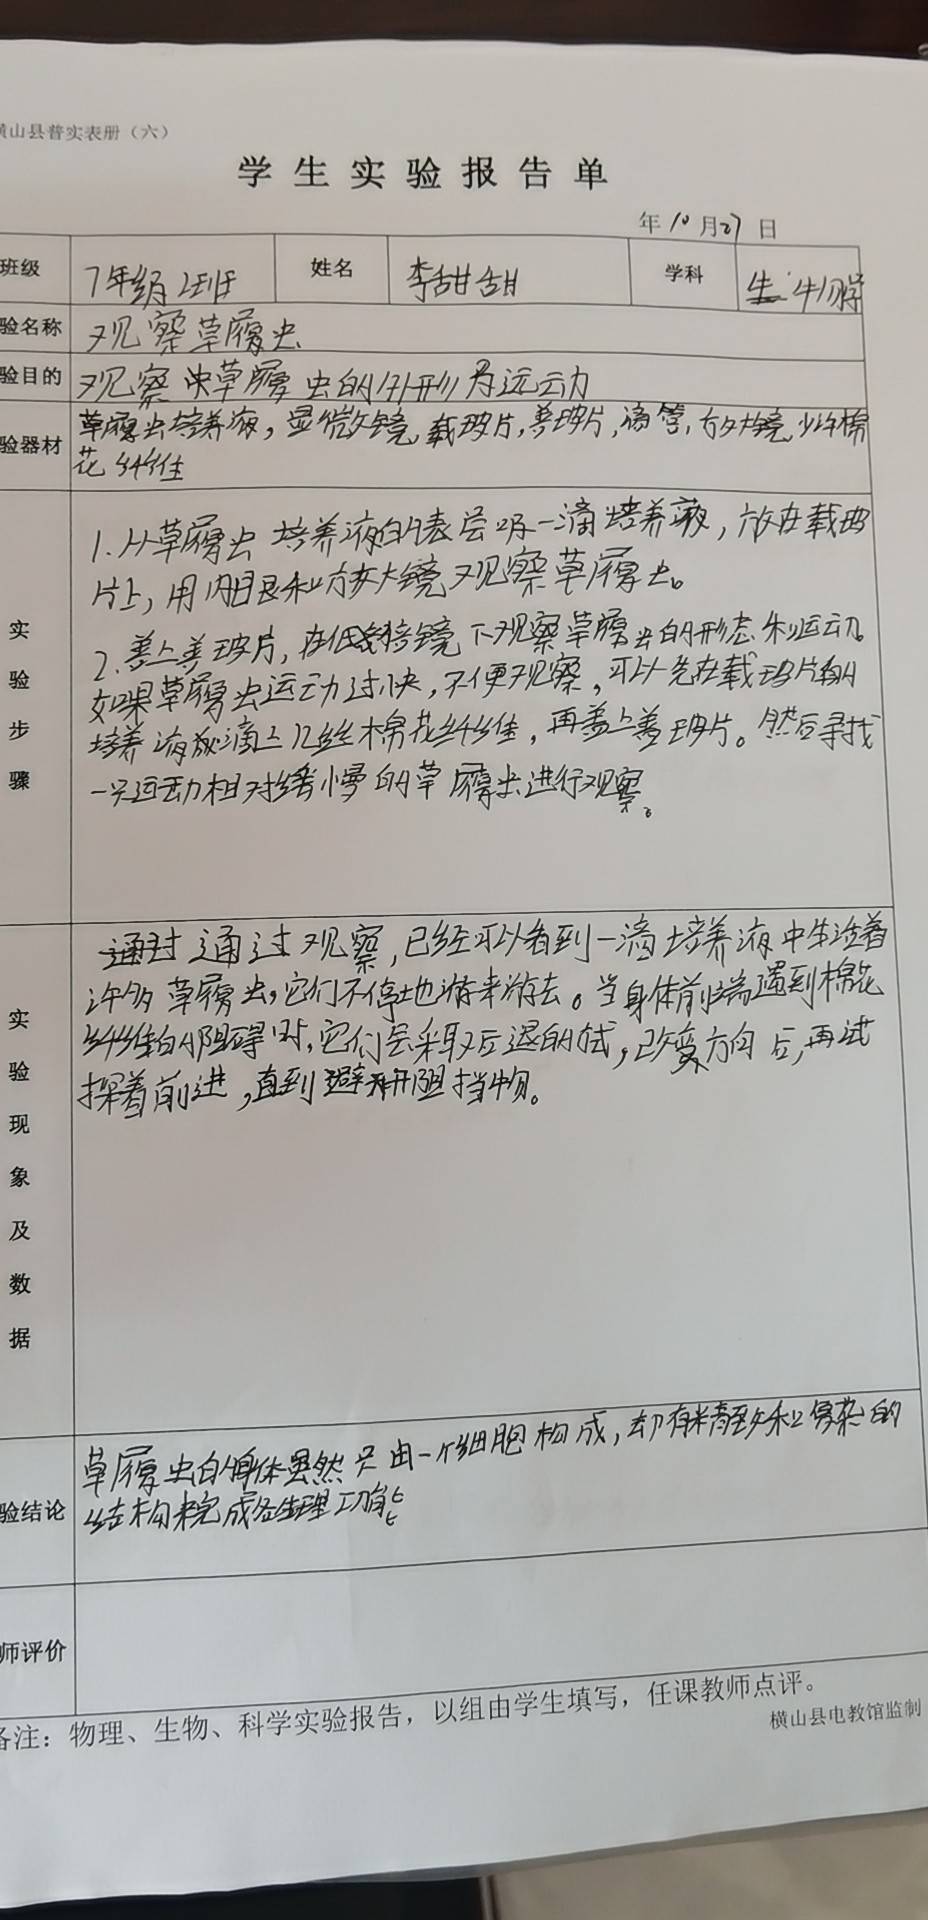 横山县普实表册（六）
学生实验报告单
年10月27日
班级 7年级2班 姓名 李甜甜 学科 生物学
验名称 观察草履虫
验目的 观察草履虫的外形 运动
验器材 草履虫培养液，显微镜，载玻片，盖玻片，滴管，放大镜，少许棉
花纤维
实验步骤
1.从草履虫培养液的表层吸一滴培养液，放在载玻
片上，用肉眼和放大镜观察草履虫。
2.盖上盖玻片，在低倍镜下观察草履虫的形态和运动。
如果草履虫运动过快，不便观察，可以先在载玻片的
培养液滴上几丝棉花纤维，再盖上盖玻片。然后寻找
一只运动相对缓慢的草履虫进行观察。
实验现象及数据
通过通过观察，已经可以看到一滴培养液中生活着
许多草履虫，它们不停地游来游去。当身体前端遇到棉花
纤维的阻碍时，它们会采取后退的 试，改变方向后，再试
探着前进，直到避开阻挡物。
验结论
草履虫的身体虽然只由一个细胞构成，却有精致和复杂的
结构来完成各生理功能
师评价
备注：物理、生物、科学实验报告，以组由学生填写，任课教师点评。
横山县电教馆监制